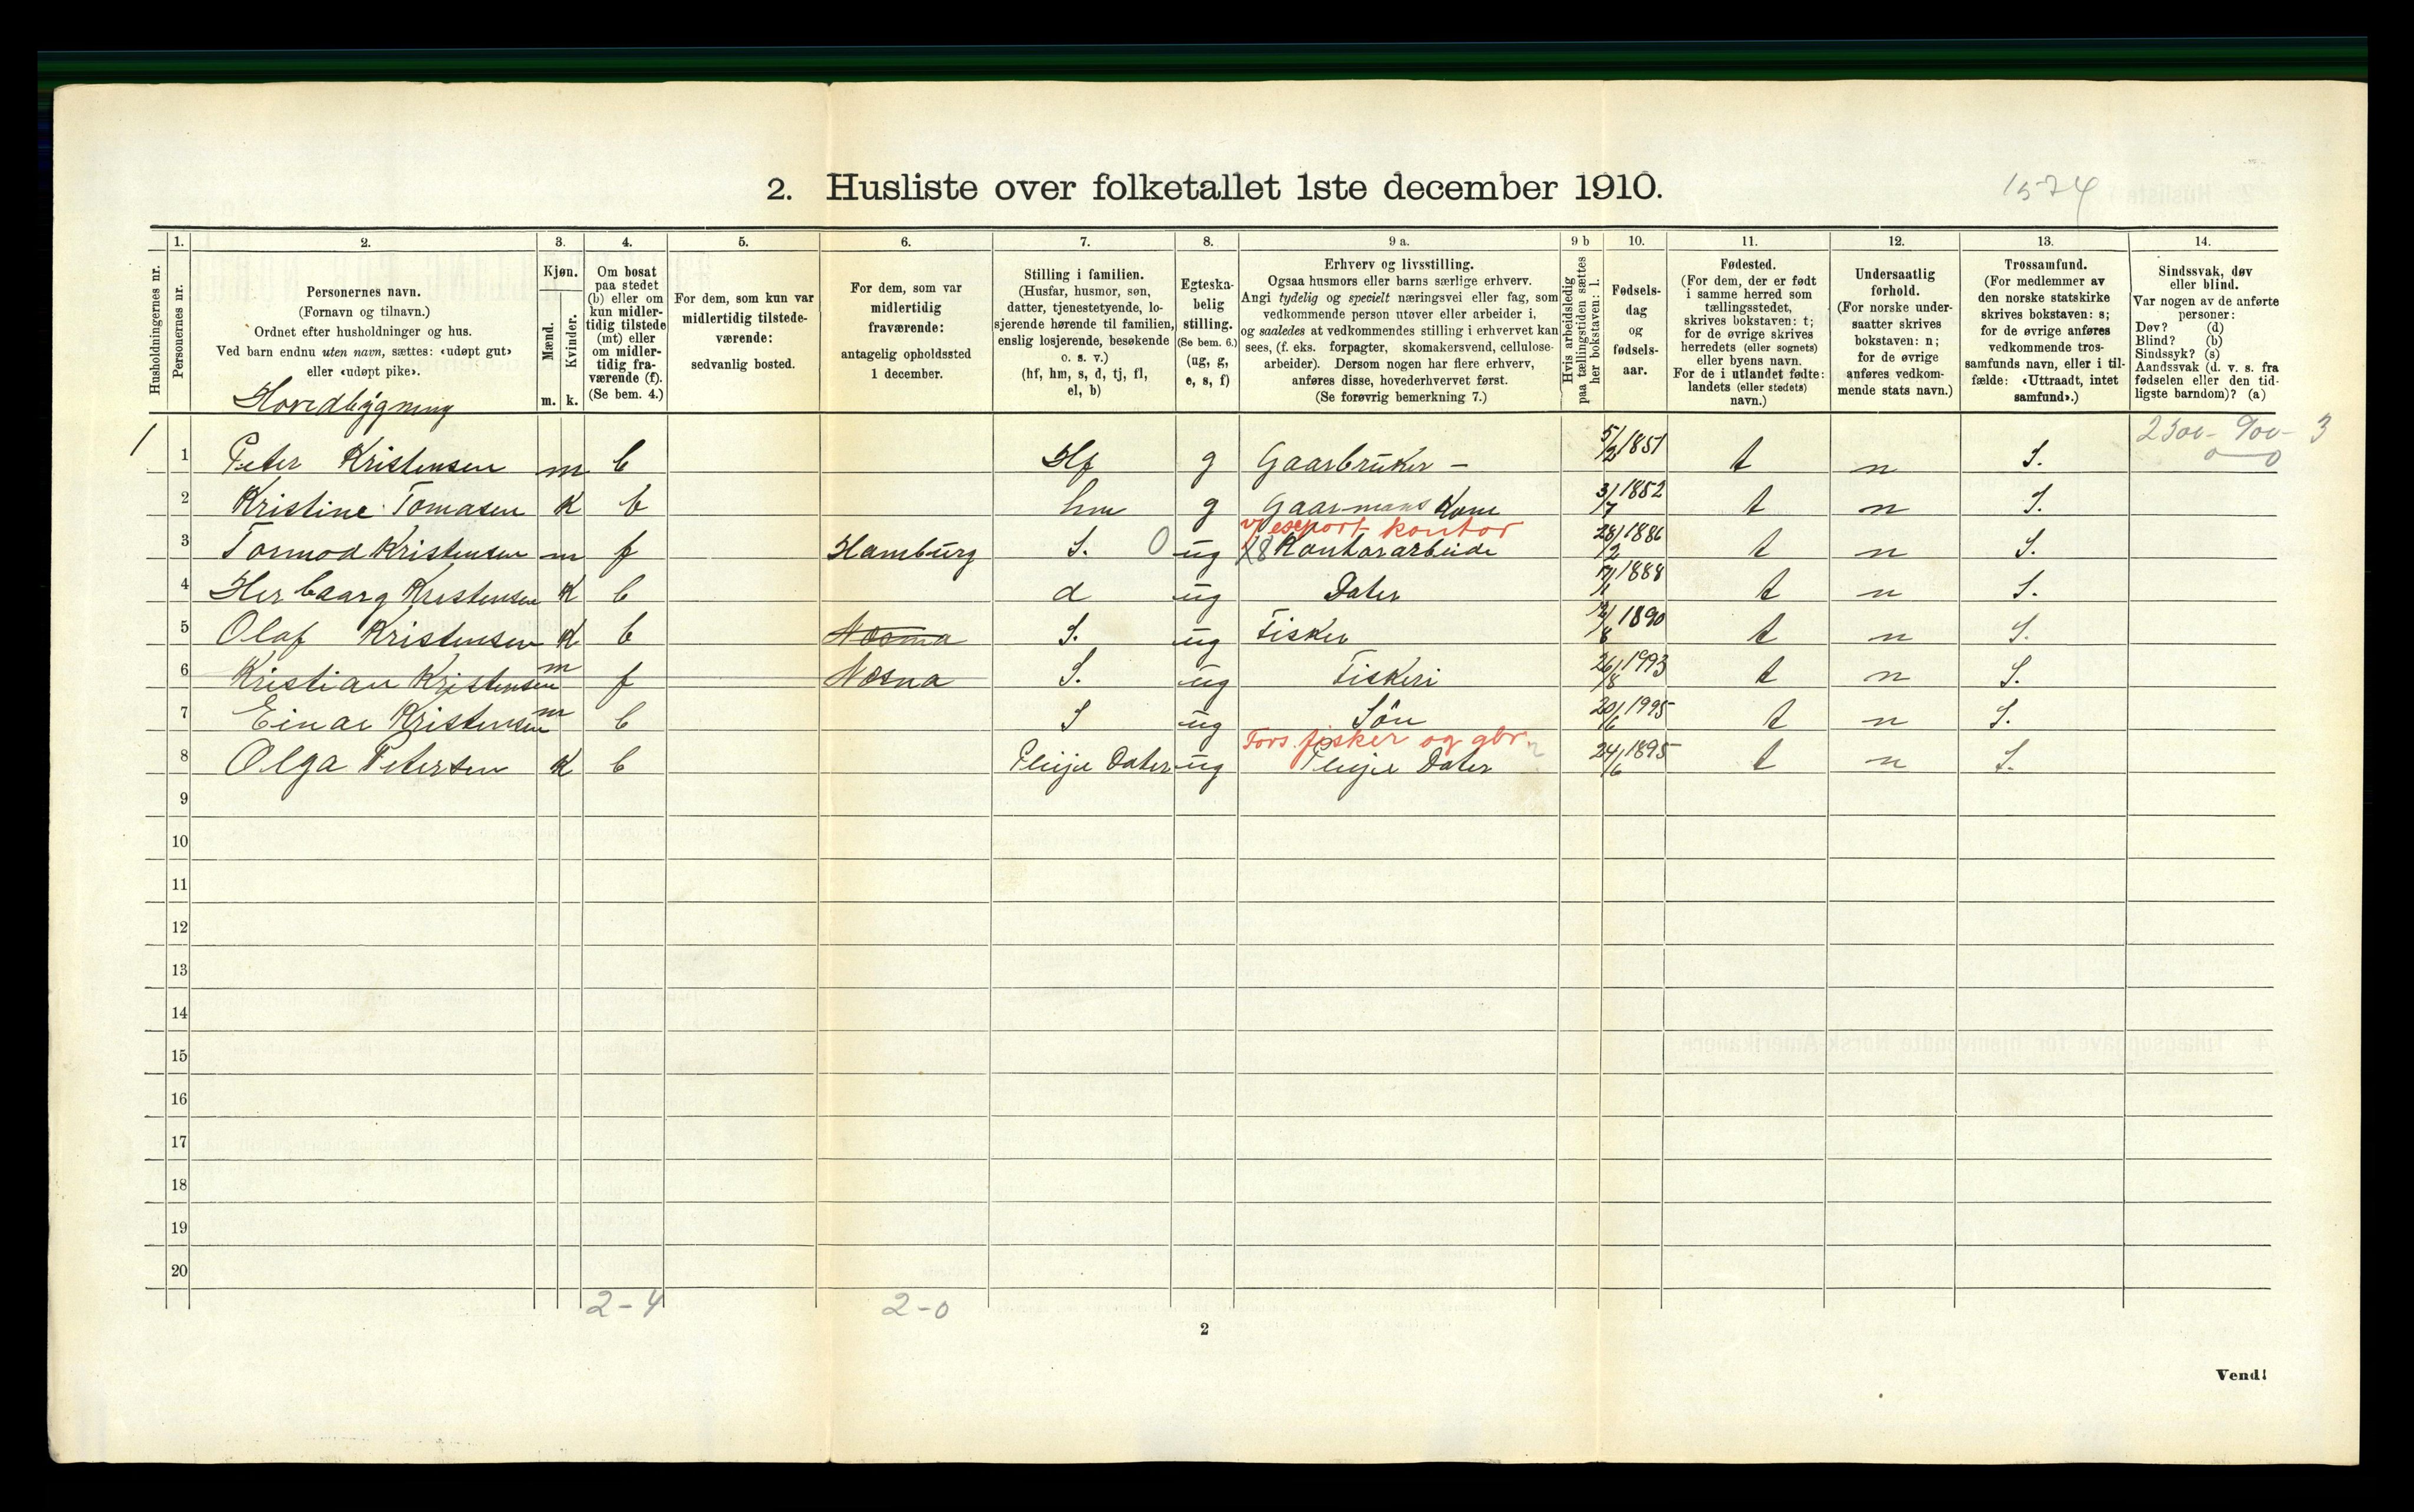 2. Husliste over folketallet 1ste december 1910.
1574
Husholdningernes nr.
1. Personernes nr.
2. Personernes navn. (Fornavn og tilnavn.) Ordnet efter husholdninger og hus. Ved barn endnu uten navn, sættes: «udøpt gut» eller «udøpt pike».
3. Kjøn. Mænd. m. Kvinder. k.
4. Om bosat paa stedet (b) eller om kun midlertidig tilstede (mt) eller om midlertidig fraværende (f). (Se bem. 4.)
5. For dem, som kun var midlertidig tilstedeværende: sedvanlig bosted.
6. For dem, som var midlertidig fraværende: antagelig opholdssted 1 december.
7. Stilling i familien. (Husfar, husmor, søn, datter, tjenestetyende, losjerende hørende til familien, enslig losjerende, besøkende o. s. v.) (hf, hm, s, d, tj, fl, el, b)
8. Egteskabelig stilling. (Se bem. 6.) (ug, g, e, s, f)
9 a. Erhverv og livsstilling. Ogsaa husmors eller barns særlige erhverv. Angi tydelig og specielt næringsvei eller fag, som vedkommende person utøver eller arbeider i, og saaledes at vedkommendes stilling i erhvervet kan sees, (f. eks. forpagter, skomakersvend, cellulosearbeider). Dersom nogen har flere erhverv, anføres disse, hovederhvervet først. (Se forøvrig bemerkning 7.)
9 b Hvis arbeidsledig paa tællingstiden sættes her bokstaven: l.
10. Fødselsdag og fødselsaar.
11. Fødested. (For dem, der er født i samme herred som tællingsstedet, skrives bokstaven: t; for de øvrige skrives herredets (eller sognets) eller byens navn. For de i utlandet fødte: landets (eller stedets) navn.)
12. Undersaatlig forhold. (For norske undersaatter skrives bokstaven: n; for de øvrige anføres vedkommende stats navn.)
13. Trossamfund. (For medlemmer av den norske statskirke skrives bokstaven: s; for de øvrige anføres vedkommende trossamfunds navn, eller i tilfælde: «Uttraadt, intet samfund».)
14. Sindssvak, døv eller blind. Var nogen av de anførte personer: Døv? (d) Blind? (b) Sindssyk? (s) Aandssvak (d. v. s. fra fødselen eller den tidligste barndom)? (a)
Hovedbygning
2300- 900- 3
0 0
1 1 Peter Kristensen m b Hf g Gaarbruker - 5/2 1851 t n S.
2 Kristine Tomasen k b hm g Gaarmans Kone 3/7 1852 t n S.
v/ export kontor
3 Tormod Kristensen m f Hamburg S. 0 ug X8 Kontorarbeide 28/2 1886 t n S.
4 Herbaarg Kristensen k b d ug Dater 1888 t n S.
5 Olaf Kristensen k b Nesna S. ug Fisker 12/8 1890 t n S.
6 Kristian Kristensen m f Nesna S. ug Fiskeri 26/8 1993 t n S.
7 Einar Kristensen m b S ug Søn 20/6 1995 t n S.
Fors. fisker og gbr.
8 Olga Petersen k b Pleije Dater ug Pleije Dater 24/6 1895 t n S.
9
10
11
12
13
14
15
16
17
18
19
20
2-4 2-0
2
Vend!